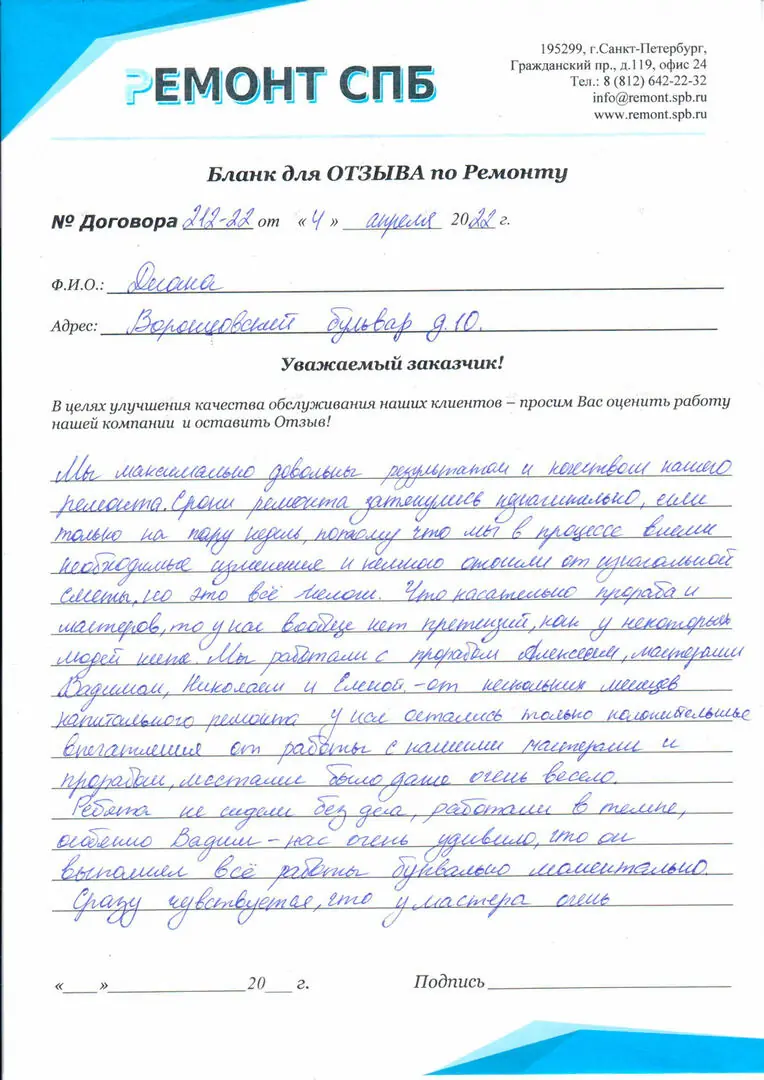 РЕМОНТ СПБ
195299, г.Санкт-Петербург,
Гражданский пр., д.119, офис 24
Тел.: 8 (812) 642-22-32
info@remont.spb.ru
www.remont.spb.ru
Бланк для ОТЗЫВА по Ремонту
№ Договора 212-22 от «4» апреля 2022 г.
Ф.И.О.: Диана
Адрес: Воронцовский бульвар д.10.
Уважаемый заказчик!
В целях улучшения качества обслуживания наших клиентов – просим Вас оценить работу
нашей компании и оставить Отзыв!
Мы максимально довольны результатом и качеством нашего
ремонта. Сроки ремонта затянулись, если
только на пару недель, потому что мы в процессе внесли
необходимые изменения и немного отошли от изначальной
сметы, но это всё мелочи. Что касательно прораба и
мастеров, то у нас вообще нет претензий, как у некоторых
людей ниже. Мы работали с прорабом Алексеем, мастерами
Вадимом, Николаем и Еленой. - от нескольких месяцев
капитального ремонта у нас остались только положительные
впечатления от работы с нашими мастерами и
прорабом, местами было даже очень весело.
Ребята не сидели без дела, работали в темпе,
особенно Вадим - нас очень удивило, что он
выполнял всё работы буквально моментально.
Сразу чувствуется, что у мастера очень
«___»______________20___ г. Подпись